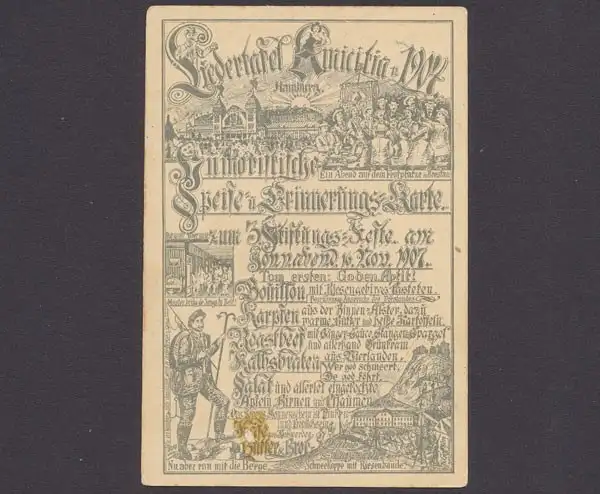 Liedertafel Amicitia v. 1904
Hamburg
Ein Abend auf dem Festplatze in Breslau
Humoristische
Speise- u. Erinnerungs-Karte
zum 3. Stiftungs-Feste am
Sonnabend 16. Nov. 1907.
Tom ersten: Goden Aptit!
Bouillon mit Riesengebirgs Pasteten.
Karpfen aus der Binnen-Alster, dazu
warme Butter und heiße Kartoffeln.
Roastbeef mit Gänger-Sauce, Stangen-Spargel
und allerhand Grünkram
Kalbsbraten aus Vierlanden.
Wer god schmeert,
De god föhrt.
Salat und allerlei eingekochte
Aepfeln, Birnen und Pflaumen
Butter u. Brot
Nu aber ran mit die Berge
Schneekoppe mit Riesenbaude